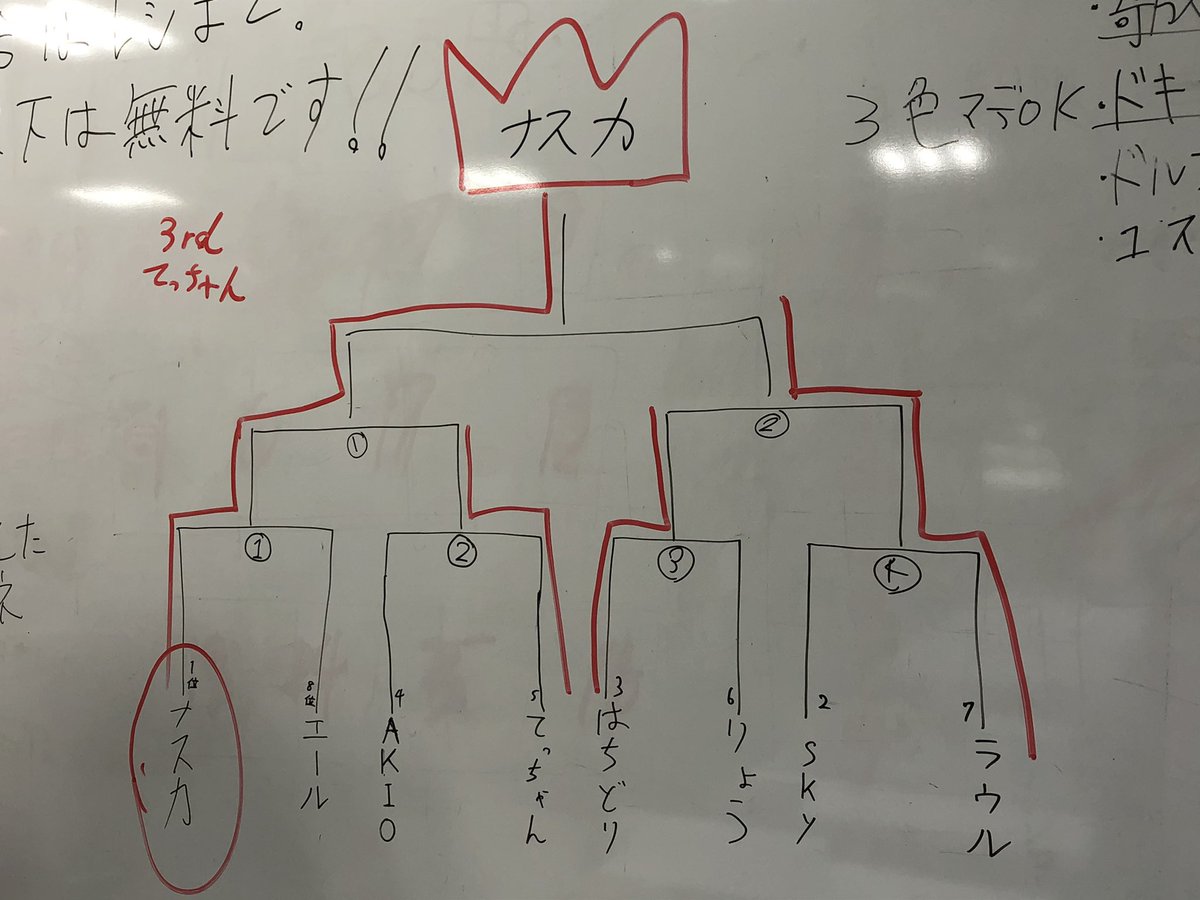 下は無料です!!
ナスカ
3色マデOK
・ドキ
・ドル
・ユス
3rd
てっちゃん
①
②
①
②
③
1位
ナスカ
8位
エール
4
AKIO
5
てっちゃん
3
はちどり
6
りょう
2
SKY
7
ラウル
した